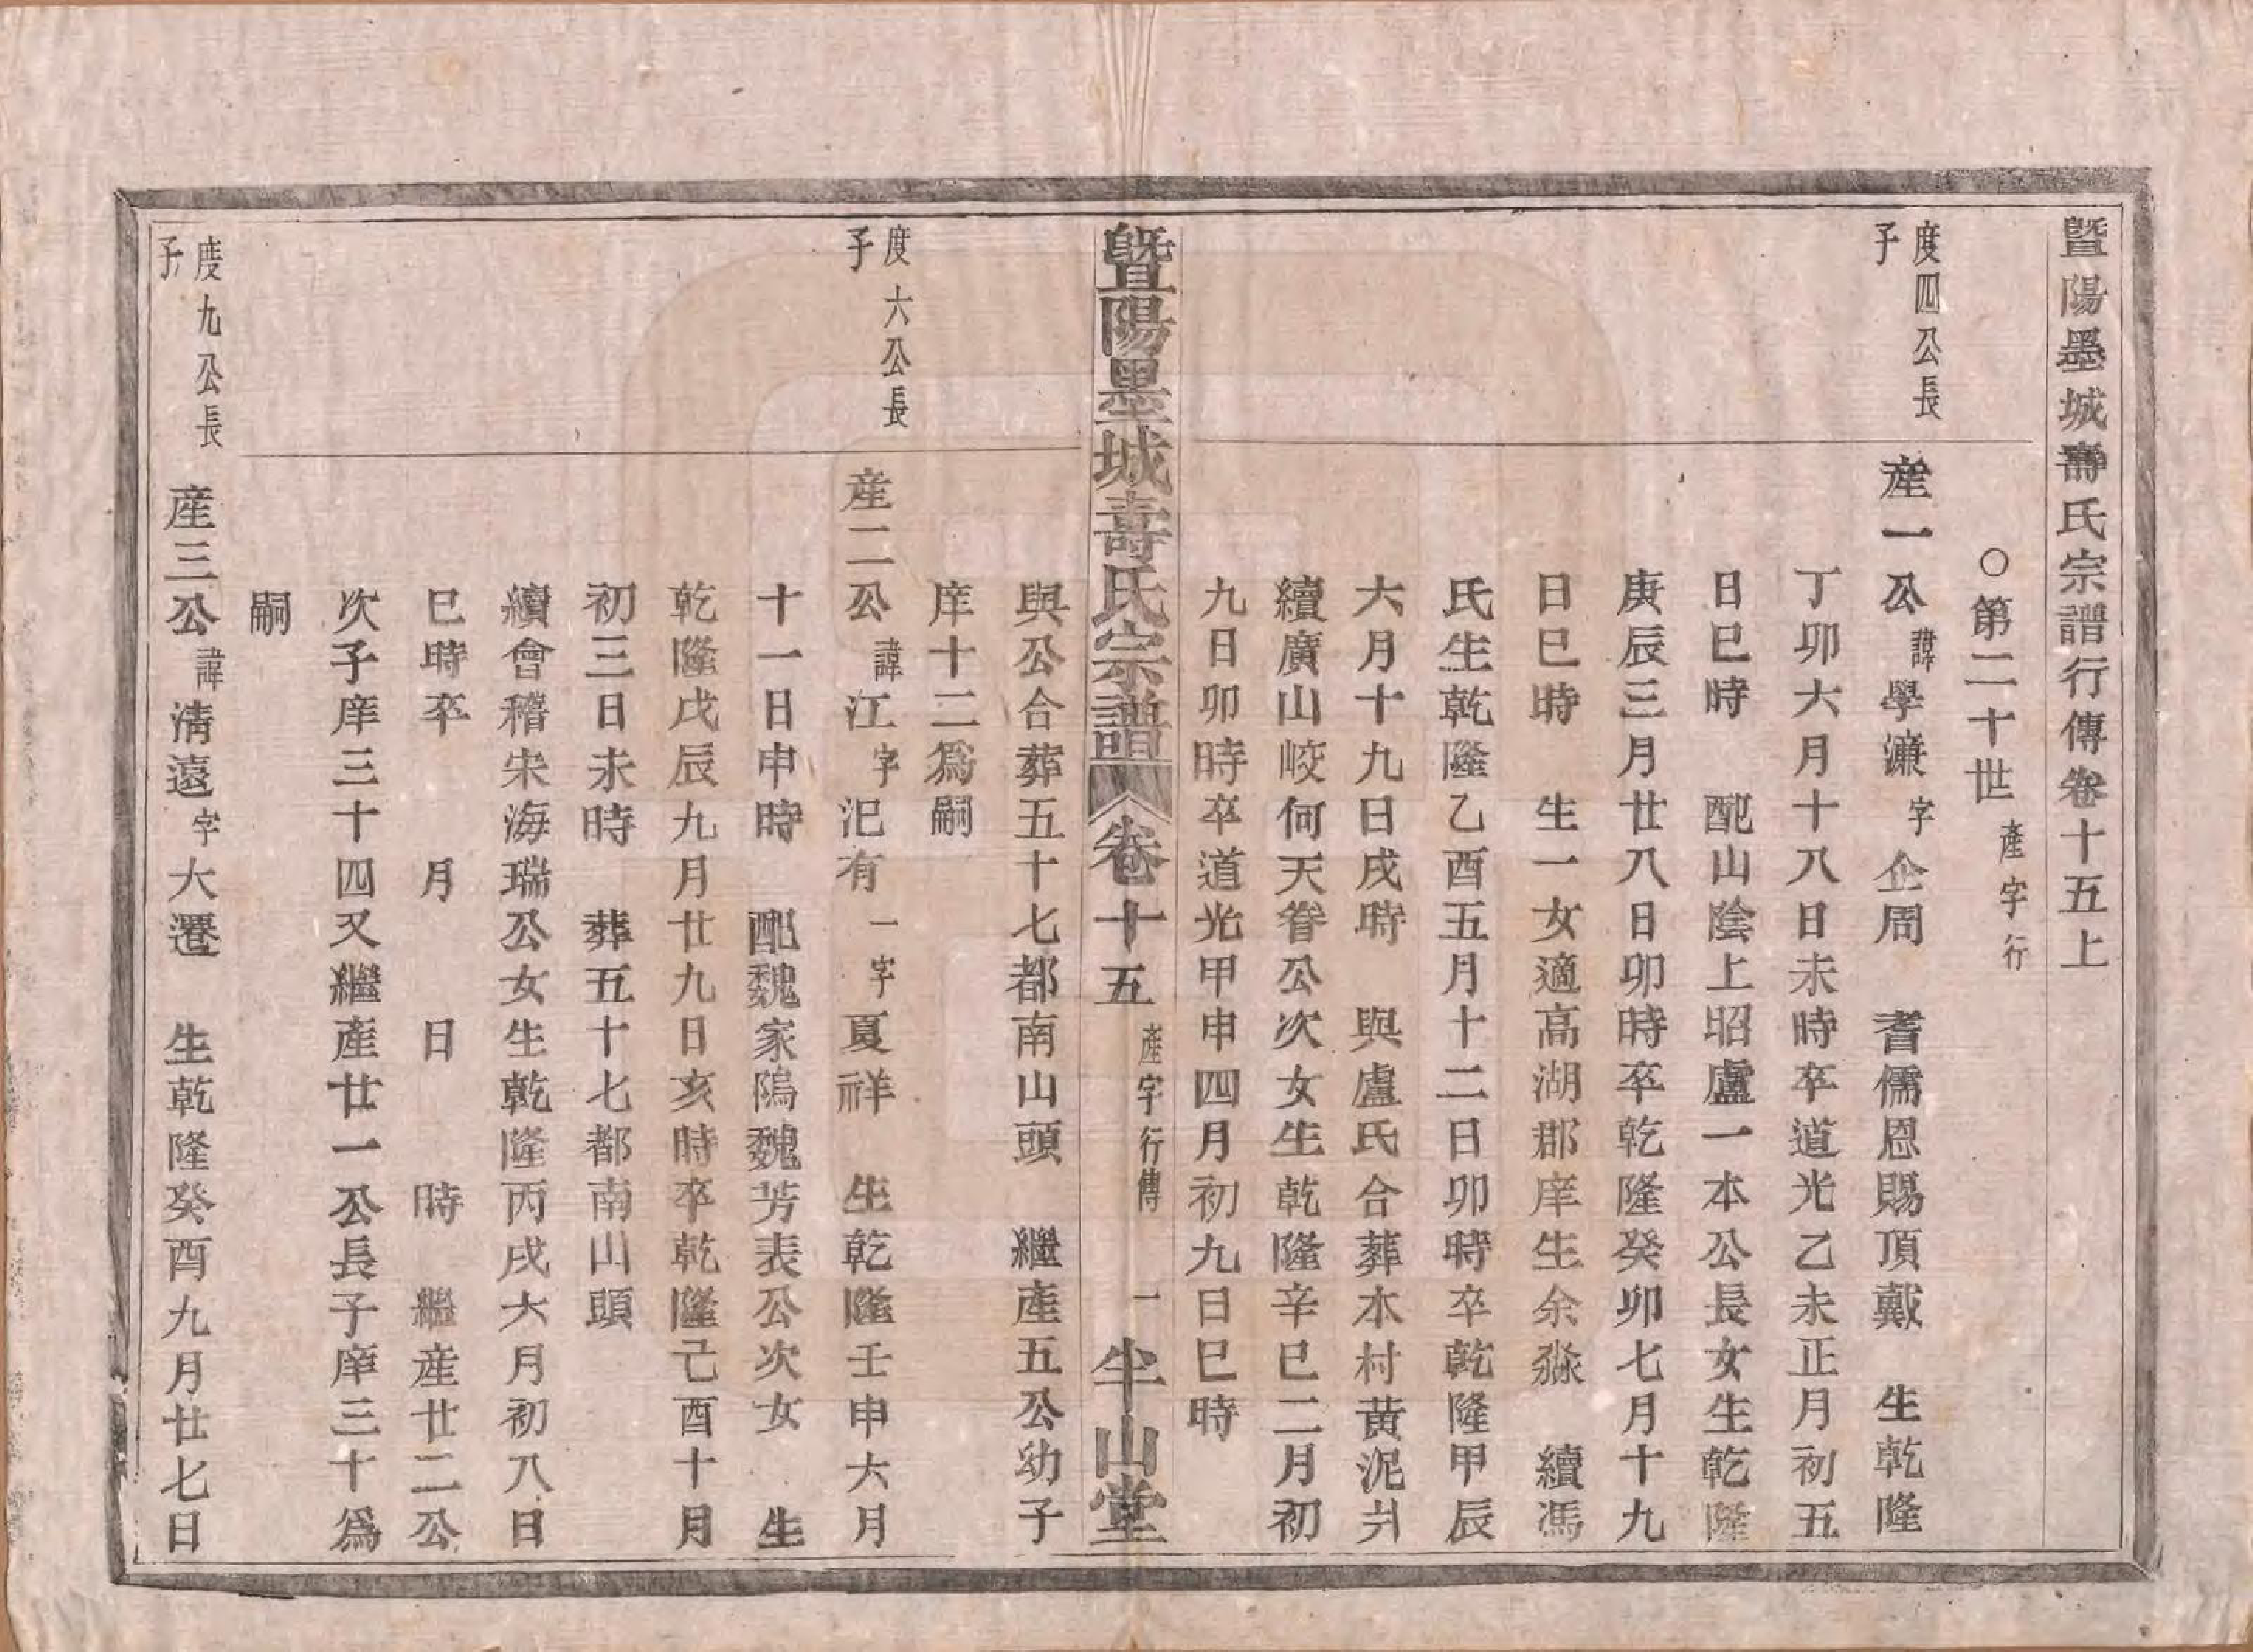 暨陽墨城壽氏宗譜行傳卷十五上
○第二十世產字行
度四公長子
產一公諱學濂字企周　耆儒恩賜頂戴　生乾隆
丁卯六月十八日未時卒道光乙未正月初五
日巳時　配山陰上昭盧一本公長女生乾隆
庚辰三月廿八日卯時卒乾隆癸卯七月十九
日巳時　生一女適高湖郡庠生余淼　續馮
氏生乾隆乙酉五月十二日卯時卒乾隆甲辰
六月十九日戌時　與盧氏合葬本村黃泥爿
續廣山峧何天眷公次女生乾隆辛巳二月初
九日卯時卒道光甲申四月初九日巳時
暨陽墨城壽氏宗譜　卷十五　產字行傳　一　半山堂
與公合葬五十七都南山頭　繼產五公幼子
庠十二爲嗣
度六公長子
產二公諱江字汜有一字夏祥　生乾隆壬申六月
十一日申時　配魏家隖魏芳表公次女　生
乾隆戊辰九月廿九日亥時卒乾隆己酉十月
初三日未時　葬五十七都南山頭
續會稽宋海瑞公女生乾隆丙戌六月初八日
巳時卒　月　日　時　繼產廿二公
次子庠三十四又繼產廿一公長子庠三十爲
嗣
度九公長子
產三公諱淸遠字大遷　生乾隆癸酉九月廿七日